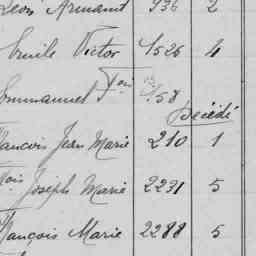 Léon Armand 936 2
Emile Victor 1526 4
Emmanuel Fois 158
Décédé
François Jean Marie 210 1
Joseph Marie 2231 5
François Marie 2288 5